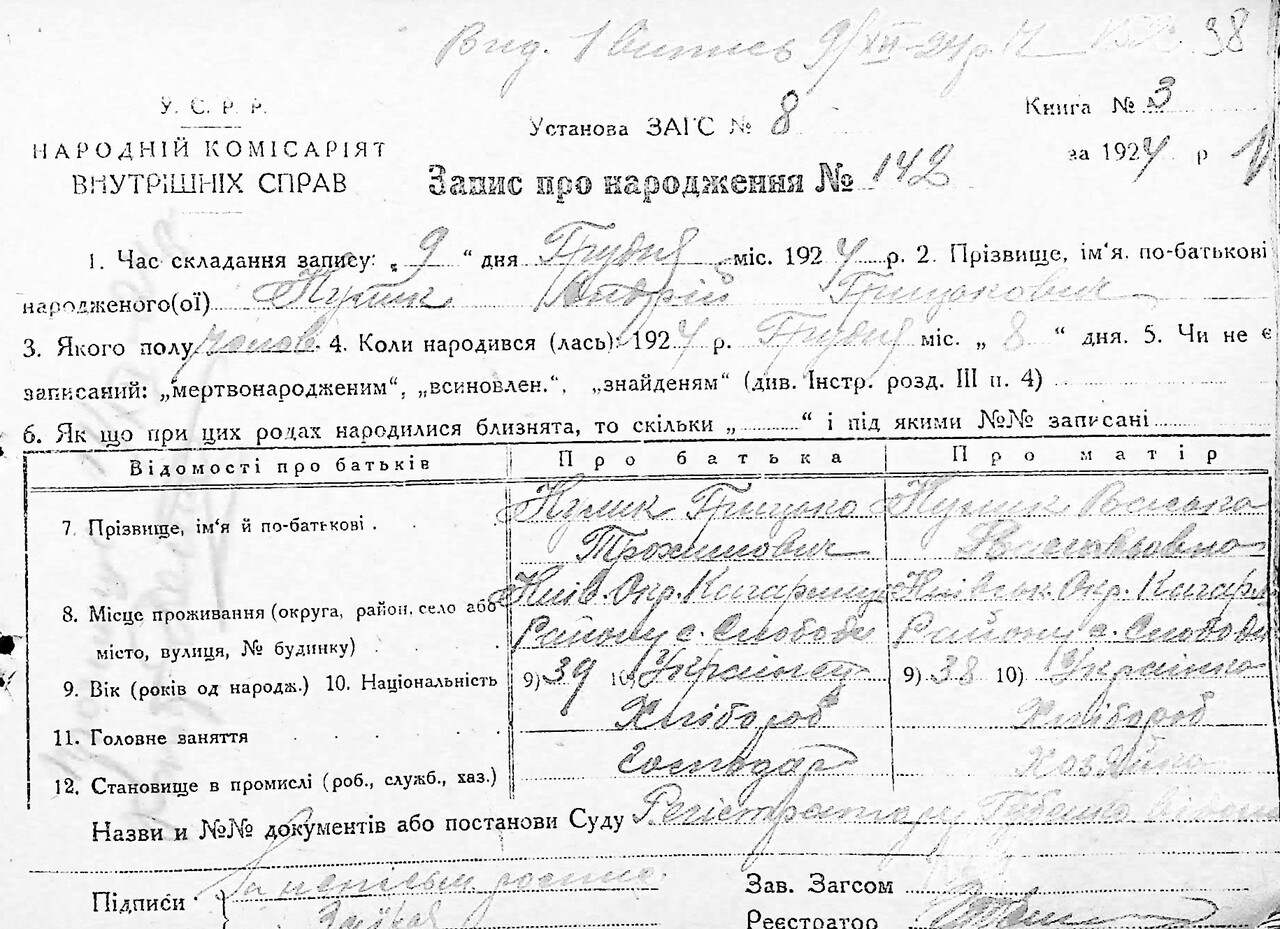 Вид. 1 витись 9/XII-24р. 38
У. С. Р. Р.
НАРОДНІЙ КОМІСАРІЯТ
ВНУТРІШНІХ СПРАВ
Установа ЗАГС № 8
Книга № 3
за 1924 р
Запис про народження № 142
1. Час складання запису: „9“ дня Грудня міс. 1924 р. 2. Прізвище, ім'я, по-батькові
народженого(ої) Кулик Андрій Грицькович
3. Якого полу чолов. 4. Коли народився (лась): 1924 р. Грудня міс. „8“ дня. 5. Чи не є
записаний: „мертвонародженим“, „всиновлен.“, „знайденям“ (див. Інстр. розд. III п. 4)
6. Як що при цих родах народилися близнята, то скільки „ “ і під якими №№ записані
Відомості про батьків Про батька Про матір
7. Прізвище, ім'я й по-батькові Кулик Грицько Кулик
Трохимович
8. Місце проживання (округа, район, село або Київ. Окр. Кагарлиц Київськ. Окр. Кагарл
місто, вулиця, № будинку) Району с. Слободи Району с. Слободи
9. Вік (років од народж.) 10. Національність 9) 39 10) Українец 9) 38 10) Українка
11. Головне заняття Хлібороб Хлібороб
12. Становище в промислі (роб., служб., хаз.) Господар Хозяйка
Назви и №№ документів або постанови Суду
Підписи
Зав. Загсом
Реєстратор